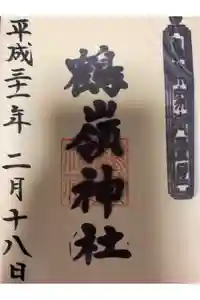 鶴嶺神社
平成三十一年 二月十八日